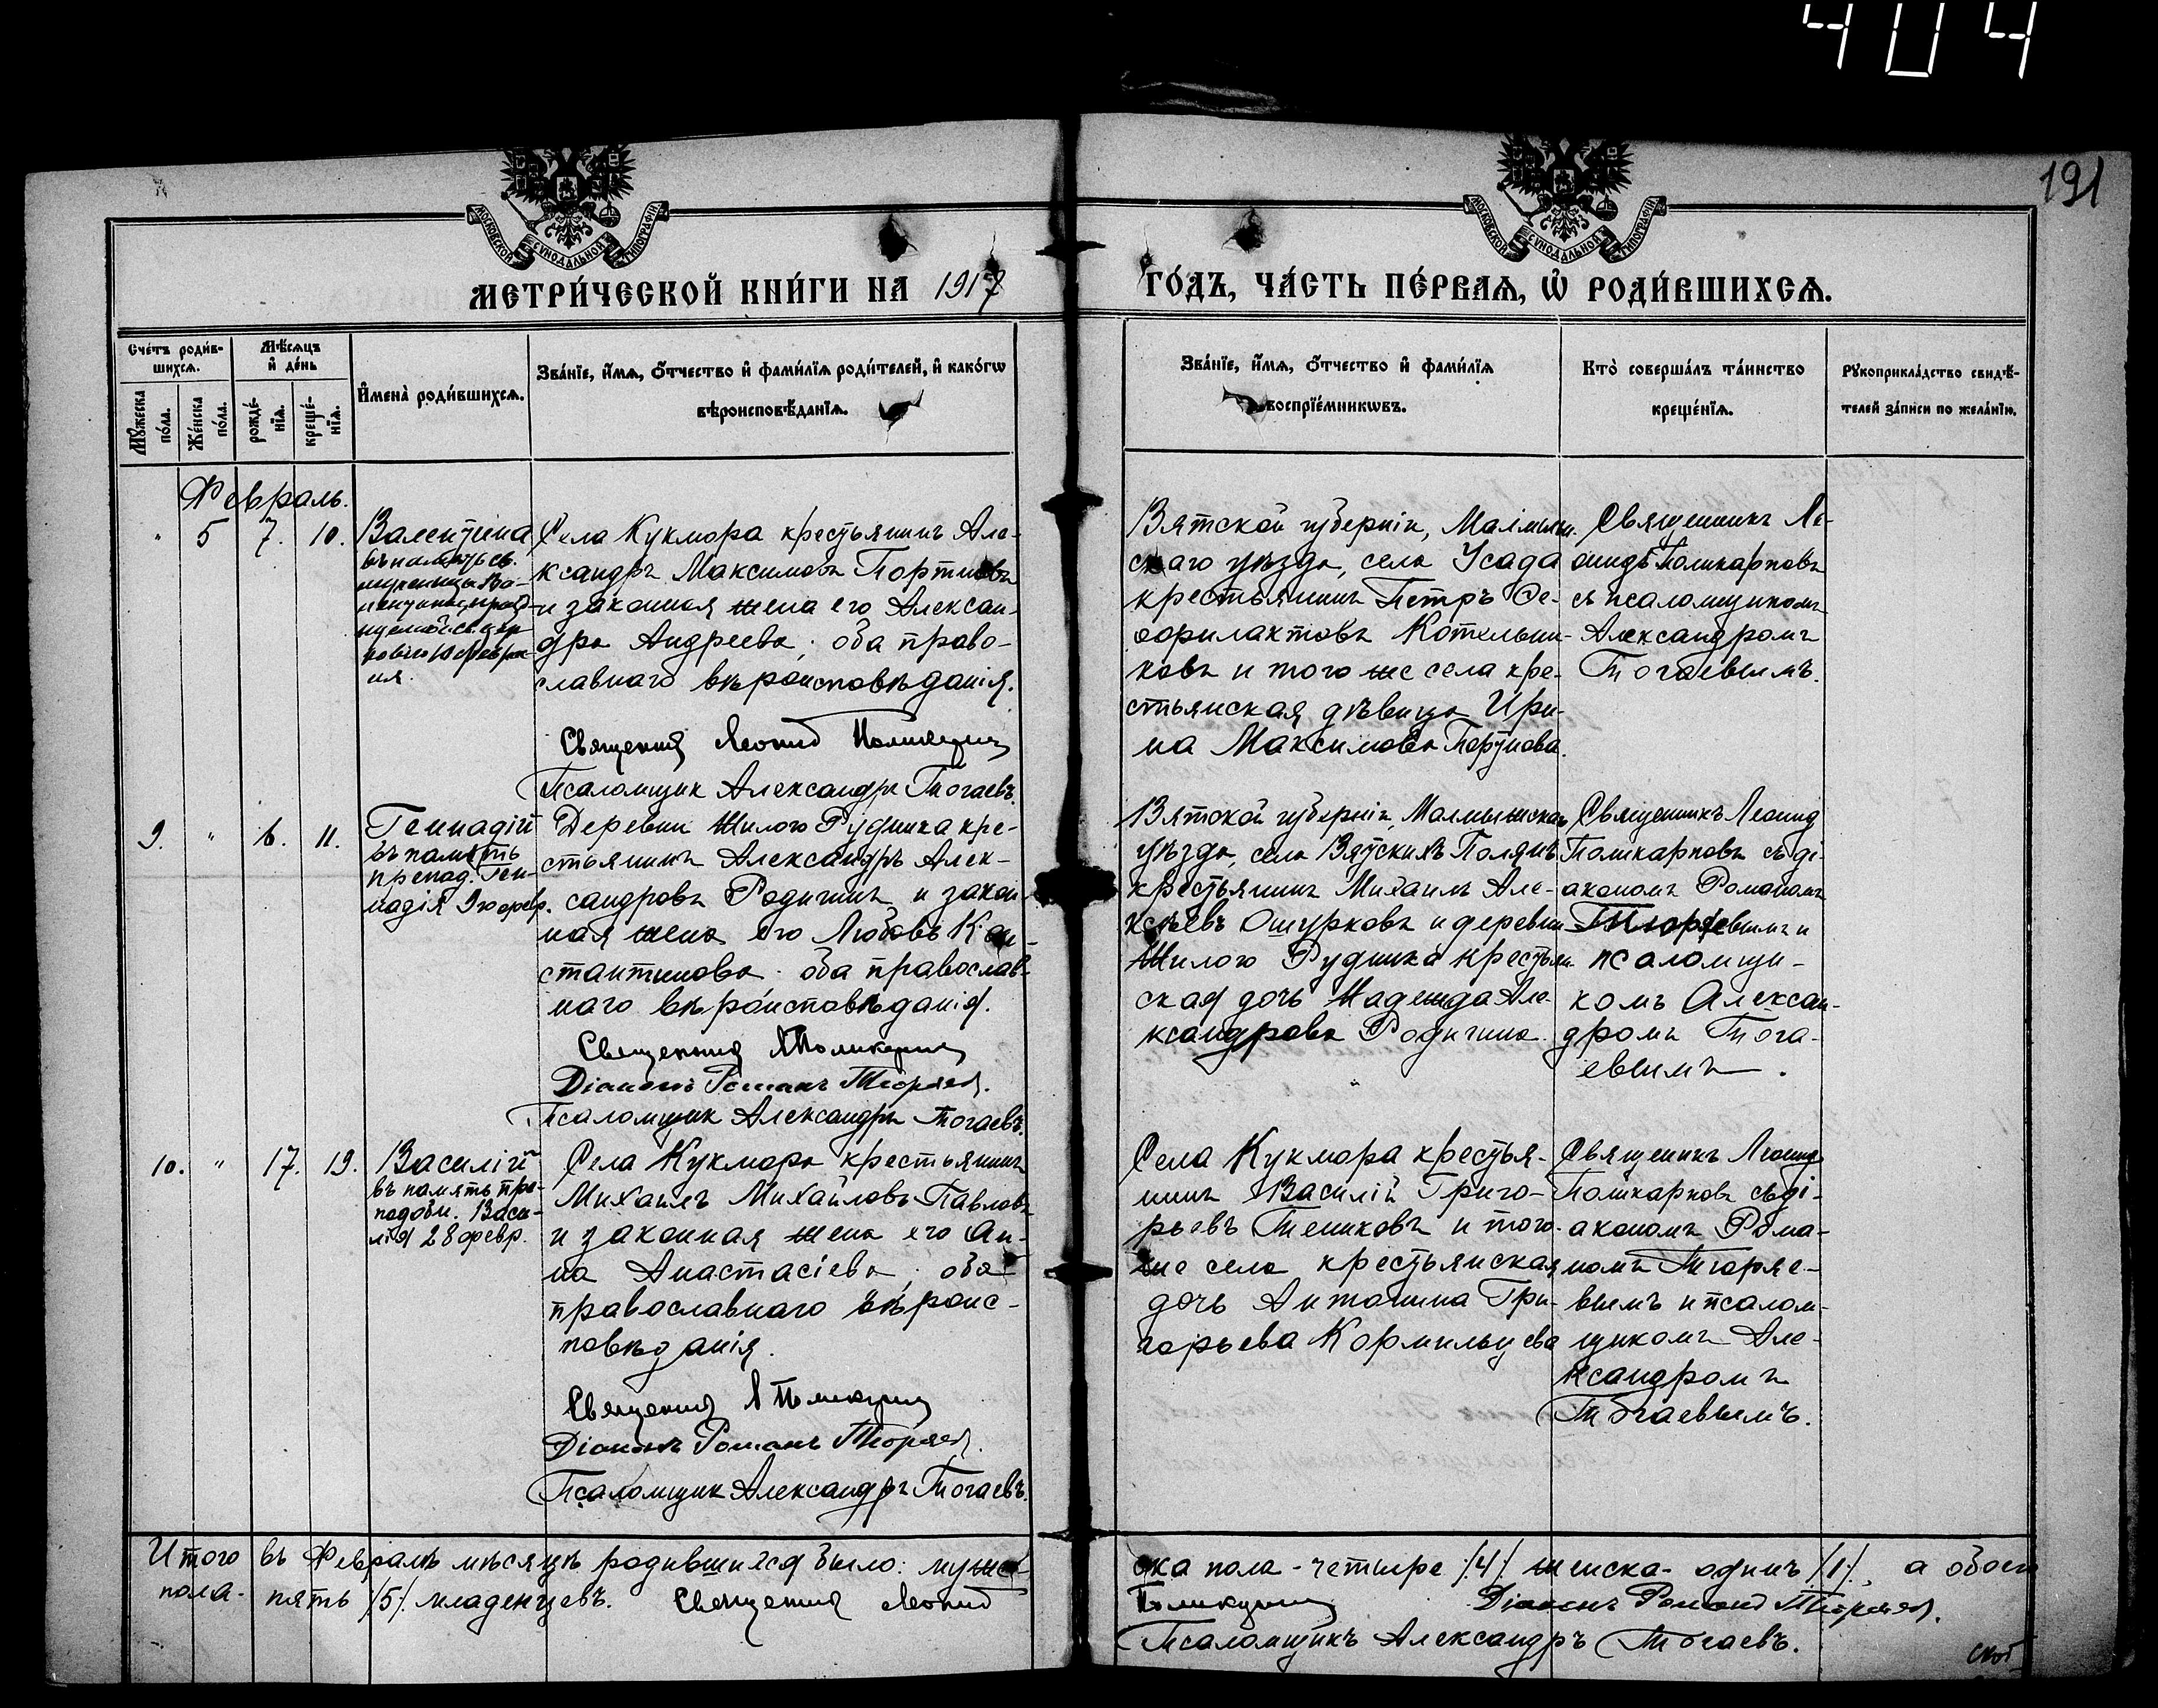 404
191
МОСКОВСКОЙ СѴНОДАЛЬНОЙ ТИПОГРАФІИ
МОСКОВСКОЙ СѴНОДАЛЬНОЙ ТИПОГРАФІИ
МЕТРИ́ЧЕСКОЙ КНИ́ГИ НА 1917
ГО́ДЪ, ЧА́СТЬ ПЕ́РВАЯ, Ѡ҆ РОДИ́ВШИХСЯ.
Счетъ роди́в-
шихся.
Мѣ́сяцъ
и҆ де́нь
Мꙋ́жеска по́ла.
Же́нска по́ла.
рожде́-
нїя.
креще́-
нїя.
И҆мена̀ роди́вшихся.
Зва́нїе, и҆́мя, ѻ҆́тчество и҆ фами́лїя роди́телей, и҆ како́гѡ
вѣроисповѣ́данїя.
Зва́нїе, и҆́мя, ѻ҆́тчество и҆ фами́лїя
воспрїе́мникѡвъ.
Кто̀ соверша́лъ та́инство
креще́нїя.
Рꙋкоприкла́дство свидѣ́-
телей за́писи по жела́нїю.
Февраль.
" 5 7. 10.
Валентина
въ память св.
мученицы Ва-
лентины,
10 февра-
ля.
Села Кукмора крестьянинъ Але-
ксандръ Максимовъ Портновъ
и законная жена его Алексан-
дра Андреева; оба право-
славнаго вѣроисповѣданія.
Священникъ Леонид Поликарпов
Псаломщик Александръ Тогаевъ.
Вятской губерніи, Малмыж-
скаго уѣзда, села Усада
крестьянинъ Петръ Фе-
офилактовъ Котельни-
ковъ и того же села кре-
стьянская дѣвица Ири-
на Максимова Портнова.
Священникъ Ле-
онидъ Поликарповъ
съ псаломщикомъ
Александромъ
Тогаевымъ.
9. " 6. 11.
Геннадій
въ память
препод. Ген-
надія 9го февр.
Деревни Жилого Рудника кре-
стьянинъ Александръ Алек-
сандровъ Родигинъ и закон-
ная жена его Любовь Кон-
стантинова. оба православ-
наго вѣроисповѣданія.
Священникъ Л Поликарпов
Діаконъ Романъ Тюряев.
Псаломщик Александръ Тогаевъ.
Вятской губерніи, Малмыжскаго
уѣзда, села Вятскихъ Полянъ
крестьянинъ Михаилъ Але-
ксѣевъ Ошурковъ и деревни
Жилого Рудника крестьян-
ская дочь Надежда Але-
ксандрова Родигина.
Священникъ Леонид
Поликарповъ съ ді-
акономъ Романомъ
Тюряевымъ и
псаломщи-
комъ Алексан-
дромъ Тога-
евымъ.
10. " 17. 19.
Василій
въ память пре-
подобн. Васи-
лія 28 февр.
Села Кукмора крестьянинъ
Михаилъ Михайловъ Павловъ
и законная жена его Ан-
на Анастасіева; оба
православнаго вѣроис-
повѣданія.
Священникъ Л Поликарпов
Діаконъ Романъ Тюряев.
Псаломщик Александръ Тогаевъ.
Села Кукмора крестья-
нинъ Василій Григо-
рьевъ Тениковъ и того-
же села крестьянская
дочь Антонина Гри-
горьева Кормильцева
Священникъ Леонид
Поликарповъ съ ді-
акономъ Рома-
номъ Тюряе-
вымъ и псалом-
щикомъ Але-
ксандромъ
Тогаевымъ.
Итого въ Февралѣ мѣсяцѣ родившихся было: муже-
ска пола - четыре /4/ женска - одинъ /1/, а обоего
пола - пять /5/ младенцевъ. Священникъ Леонид
Поликарпов Діаконъ Романъ Тюряев.
Псаломщикъ Александръ Тогаевъ.